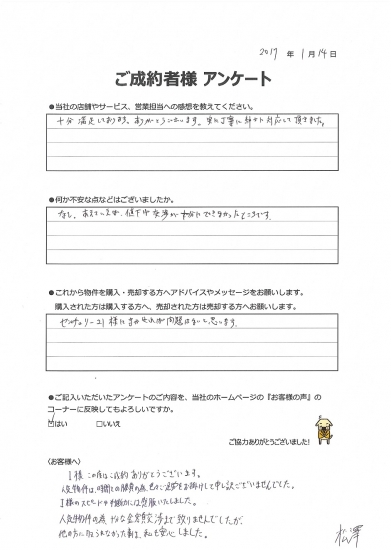 2017 年 1 月 14 日
ご成約者様 アンケート
●当社の店舗やサービス、営業担当への感想を教えてください。
十分満足しております。ありがとうございます。実に丁寧に 対応して頂きました。
●何か不安な点などはございましたか。
なし。あえていえば、値下げ交渉が十分にできなかったところです。
●これから物件を購入・売却する方へアドバイスやメッセージをお願いします。
購入された方は購入する方へ、売却された方は売却する方へお願いします。
センチュリー21様にまかせれば問題はないと思います。
●ご記入いただいたアンケートのご内容を、当社のホームページの『お客様の声』の
コーナーに反映してもよろしいですか。
☑はい □いいえ
ご協力ありがとうございました!
〈お客様へ〉
I様 この度はご成約ありがとうございます。
人気物件は、時間との勝負の為、色々ご迷惑をお掛けして申し訳ございませんでした。
I様のスピードと決断力には感服いたしました。
人気物件の為、大きな金額交渉まで致りませんでしたが、
他の方に取られなかった事、私も安心しました。
松澤